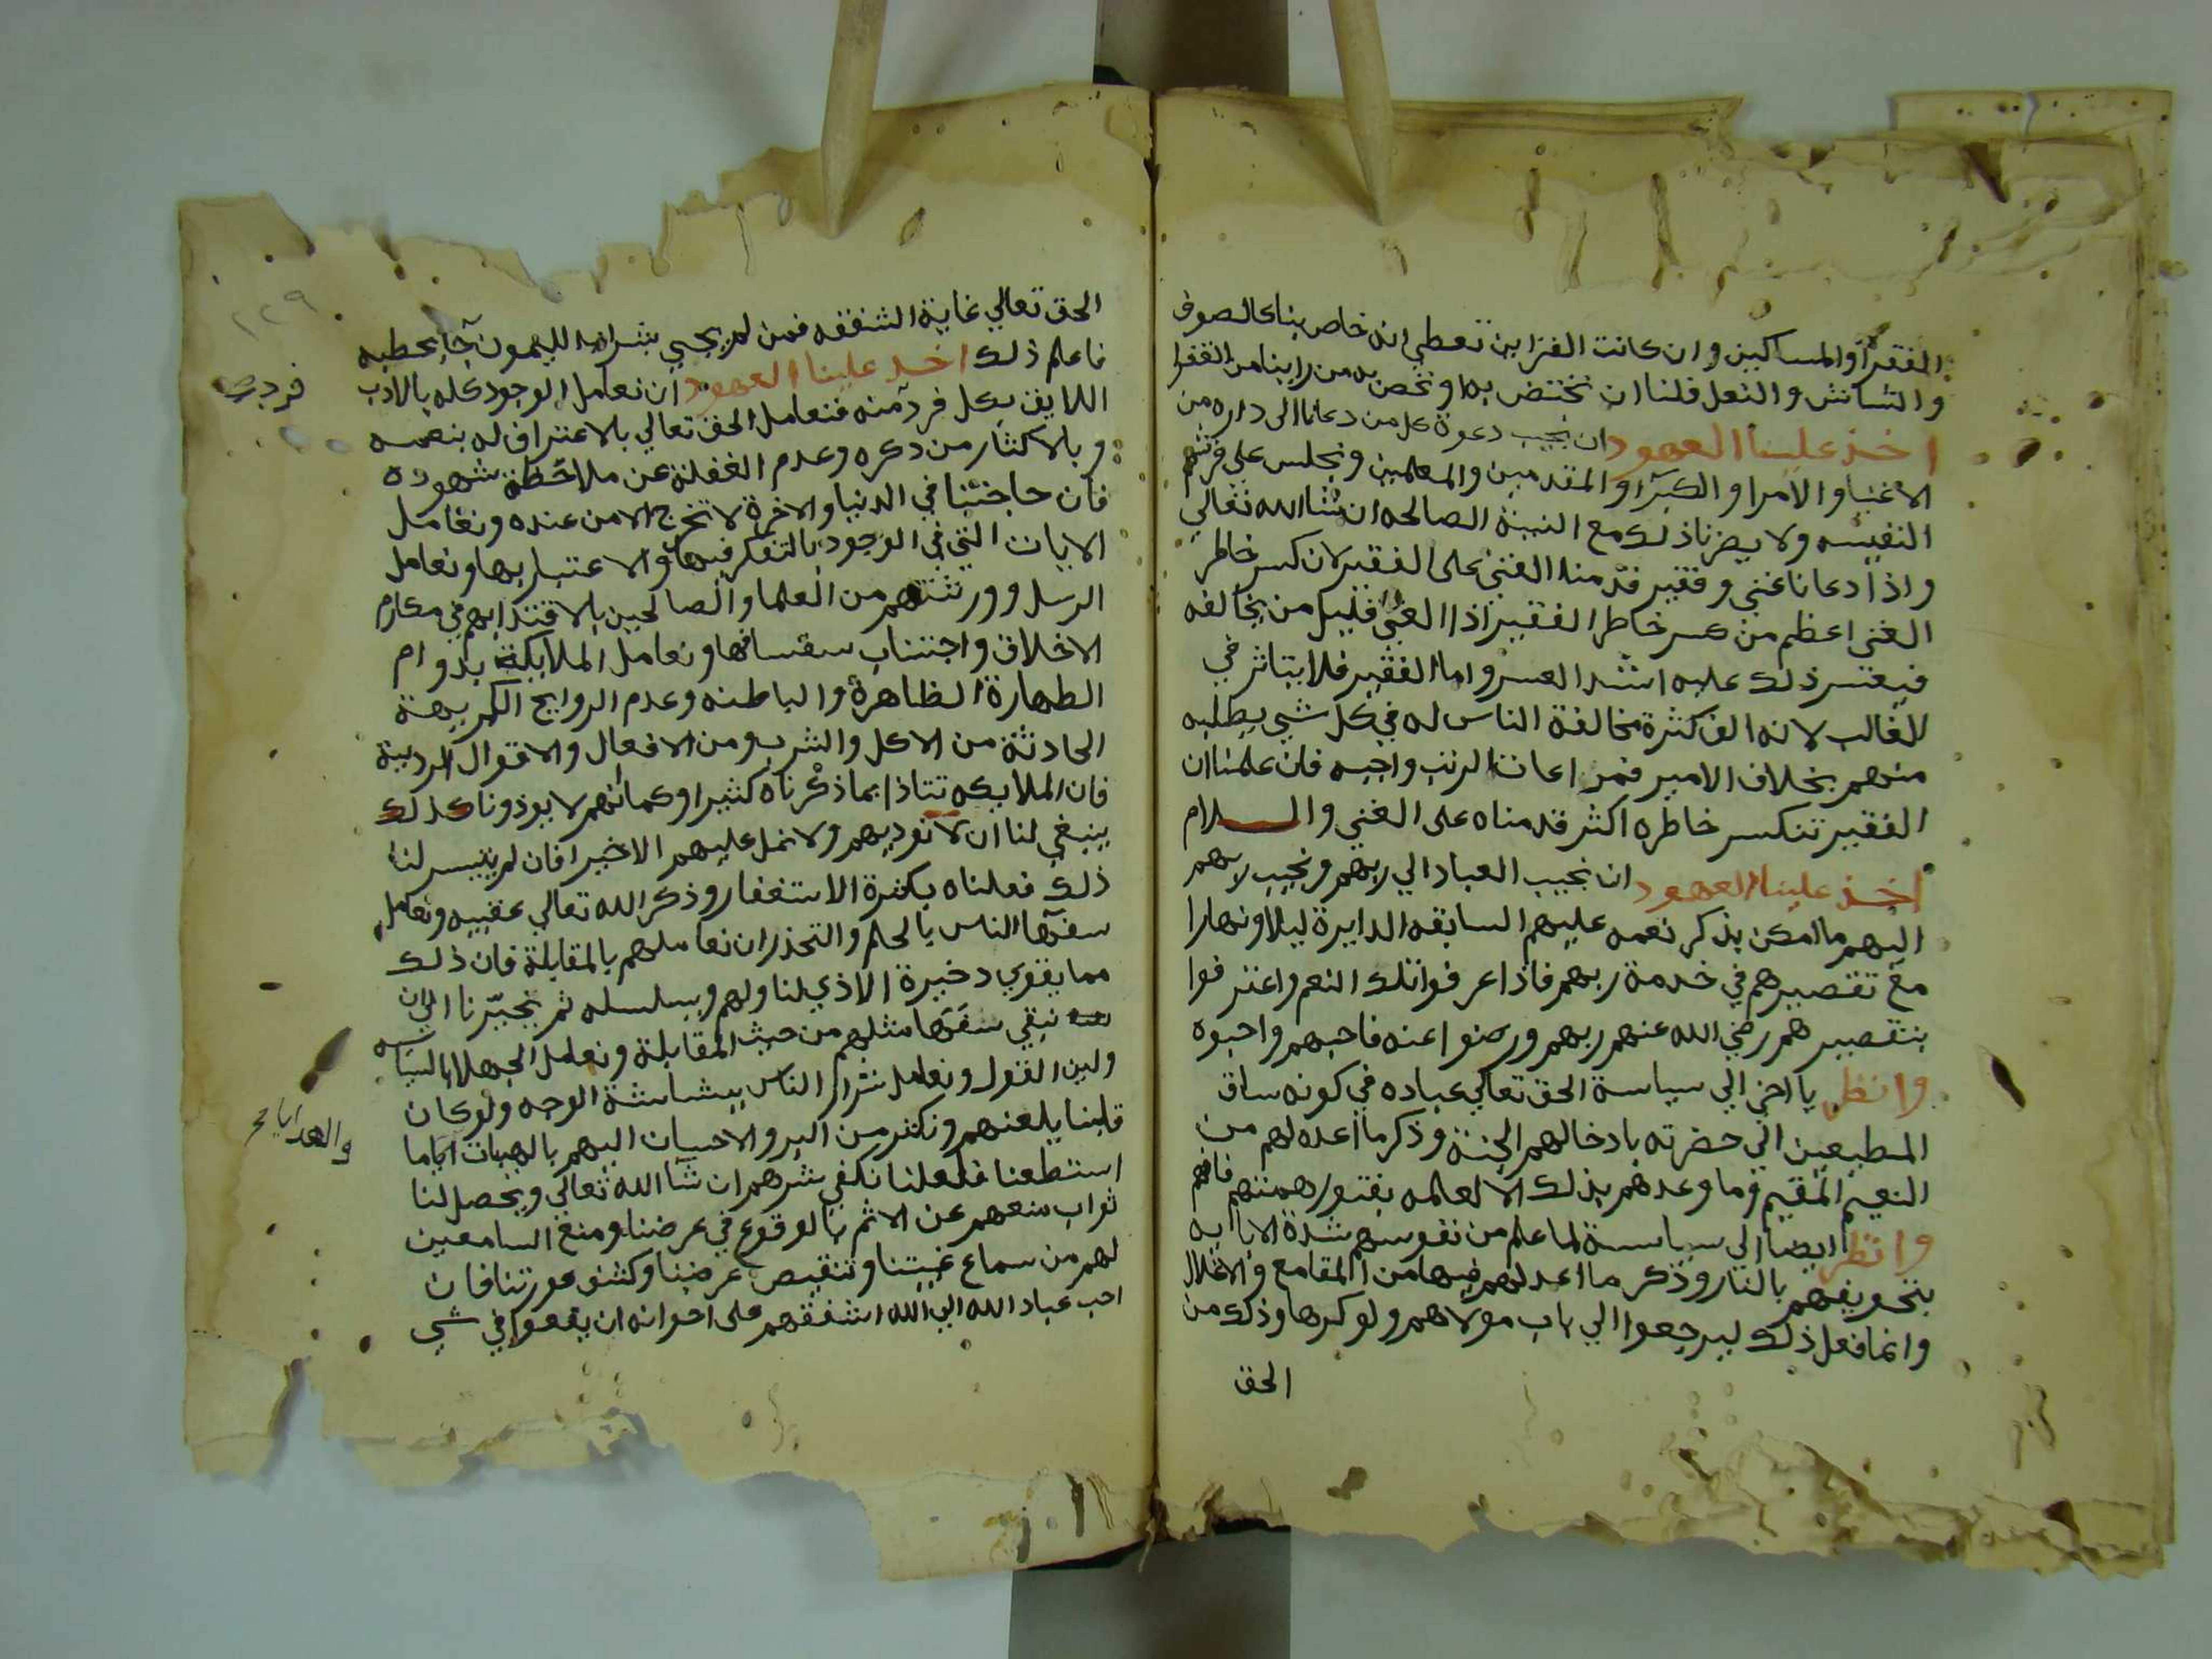 الفقرآ والمساكين وان كانت القراين تعطي انه خاص بنا كالصوف
والشاش والنعل فلنا ان نختص به او نخص به من راينا من الفقرا
اخذ علينا العهود ان نجيب دعوة كل من دعانا الى داره من
الاغنيا والامرا والكبرآ والمقدمين والمعلمين ونجلس على فرشهم
النفيسه ولا يضرنا ذلك مع النية الصالحه ان شا الله تعالي
واذا دعانا غني وفقير قدمنا الغني على الفقير لان كسر خاطر
الغني اعظم من كسر خاطر الفقير اذ الغني قليل من يخالفه
فيعسر ذلك عليه اشد العسر واما الفقير فلا يتاثر في
الغالب لانه الف كثرة مخالفة الناس له في كل شي يطلبه
منهم بخلاف الامير فمراعات الرتب واجبه فان علمنا ان
الفقير تنكسر خاطره اكثر قدمناه على الغني والسلام
اخذ علينا العهود ان نحبب العباد الي ربهم ونحبب ربهم
اليهم ما امكن بذكر نعمه عليهم السابقه الدايرة ليلا ونهارا
مع تقصيرهم في خدمة ربهم فاذا عرفوا تلك النعم واعترفوا
بتقصيرهم رضي الله عنهم ربهم ورضوا عنه فاحبهم واحبوه
وانظر يا اخي الي سياسة الحق تعالي عباده في كونه ساق
المطيعين الي حضرته بادخالهم الجنة وذكر ما اعده لهم من
النعيم المقيم وما وعدهم بذلك الا لعلمه بفتور همتهم فافهم
وانظر ايضا الي سياسة لما علم من نفوسهم شدة الاباية
بتخويفهم بالنار وذكر ما اعد لهم فيها من المقامع والاغلال
وانما فعل ذلك ليرجعوا الي باب مولاهم ولو كرها وذلك من
الحق
١٢٩
الحق تعالي غاية الشفقه فمن لم يجي بشراب الليمون جآ بحطبه
فاعلم ذلك اخذ علينا العهود ان نعامل الوجود كله بالادب
اللايق بكل فرد منه فنعامل الحق تعالي بالاعتراف له بنعمه
وبالاكثار من ذكره وعدم الغفلة عن ملاحظة شهوده
فان حاجتنا في الدنيا والاخرة لا تخرج الا من عنده ونعامل
الايات التي في الوجود بالتفكر فيها والاعتبار بها ونعامل
الرسل وورثتهم من العلما والصالحين بالاقتدا بهم في مكارم
الاخلاق واجتناب سفسافها ونعامل الملايكة بدوام
الطهارة الظاهرة والباطنه وعدم الروايح الكريهة
الحادثة من الاكل والشرب ومن الافعال والاقوال الردية
فان الملايكه تتاذا بما ذكرناه كثيرا وكما انهم لا يوذونا كذلك
ينبغي لنا ان لا نوديهم ولا نمل عليهم الا خيرا فان لم يتيسر لنا
ذلك فعلناه بكثرة الاستغفار وذكر الله تعالي عقبيه ونعامل
سفهآ الناس بالحلم والتحذر ان نعاملهم بالمقابلة فان ذلك
مما يقوي دخيرة الاذي لنا ولهم ويسلسله ثم يجرنا الي ان
نبقي سفهآ مثلهم من حيث المقابلة ونعامل الجهلا بالسياسه
ولين القول ونعامل شرار الناس ببشاشة الوجه ولو كان
قلبنا يلعنهم ونكثر من البر والاحسان اليهم بالهبات اياما
استطعنا فلعلنا نكفي شرهم ان شآ الله تعالي ويحصل لنا
ثواب منعهم عن الاثم بالوقوع في عرضنا ومنع السامعين
لهم من سماع غيبتنا وتنقيص عرضنا وكشف عورتنا فان
احب عباد الله الي الله اشفقهم على اخوانه ان يقعوا في شي
والهدايا